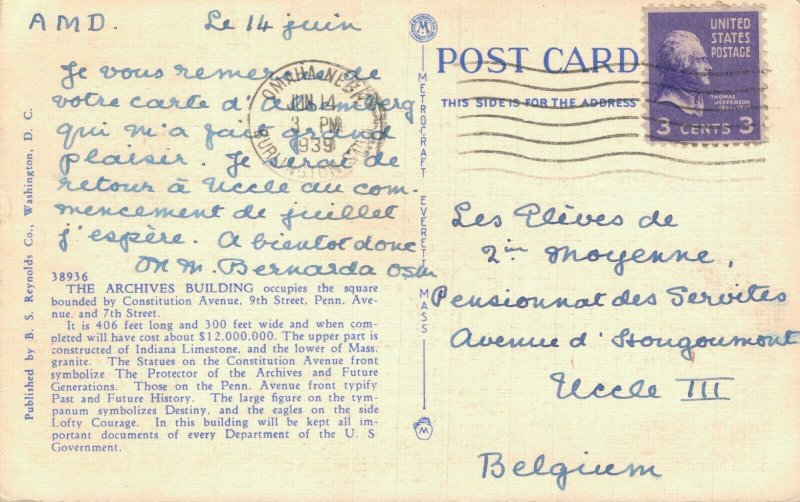 A M D.
Le 14 juin
Je vous remercie de
votre carte d'
qui m'a fait grand
plaisir. Je serai de
retour à Uccle au com-
mencement de juillet
j'espère. A bientot donc
M. Bernarda Osm
38936
THE ARCHIVES BUILDING occupies the square
bounded by Constitution Avenue, 9th Street, Penn. Ave-
nue, and 7th Street.
It is 406 feet long and 300 feet wide and when com-
pleted will have cost about $12,000,000. The upper part is
constructed of Indiana Limestone, and the lower of Mass.
granite. The Statues on the Constitution Avenue front
symbolize The Protector of the Archives and Future
Generations. Those on the Penn. Avenue front typify
Past and Future History. The large figure on the tym-
panum symbolizes Destiny, and the eagles on the side
Lofty Courage. In this building will be kept all im-
portant documents of every Department of the U. S
Government.
Published by B. S. Reynolds Co., Washington, D. C.
M
METROCRAFT EVERETT MASS
M
OMAHA-NEBR.
JUN 14
3 PM
1939
BURLINGTON STA.
POST CARD
THIS SIDE IS FOR THE ADDRESS
UNITED
STATES
POSTAGE
THOMAS
JEFFERSON
3 CENTS 3
Les Elèves de
2ième Moyenne,
Pensionnat des Servites
Avenue d'Hougoumont
Uccle III
Belgium